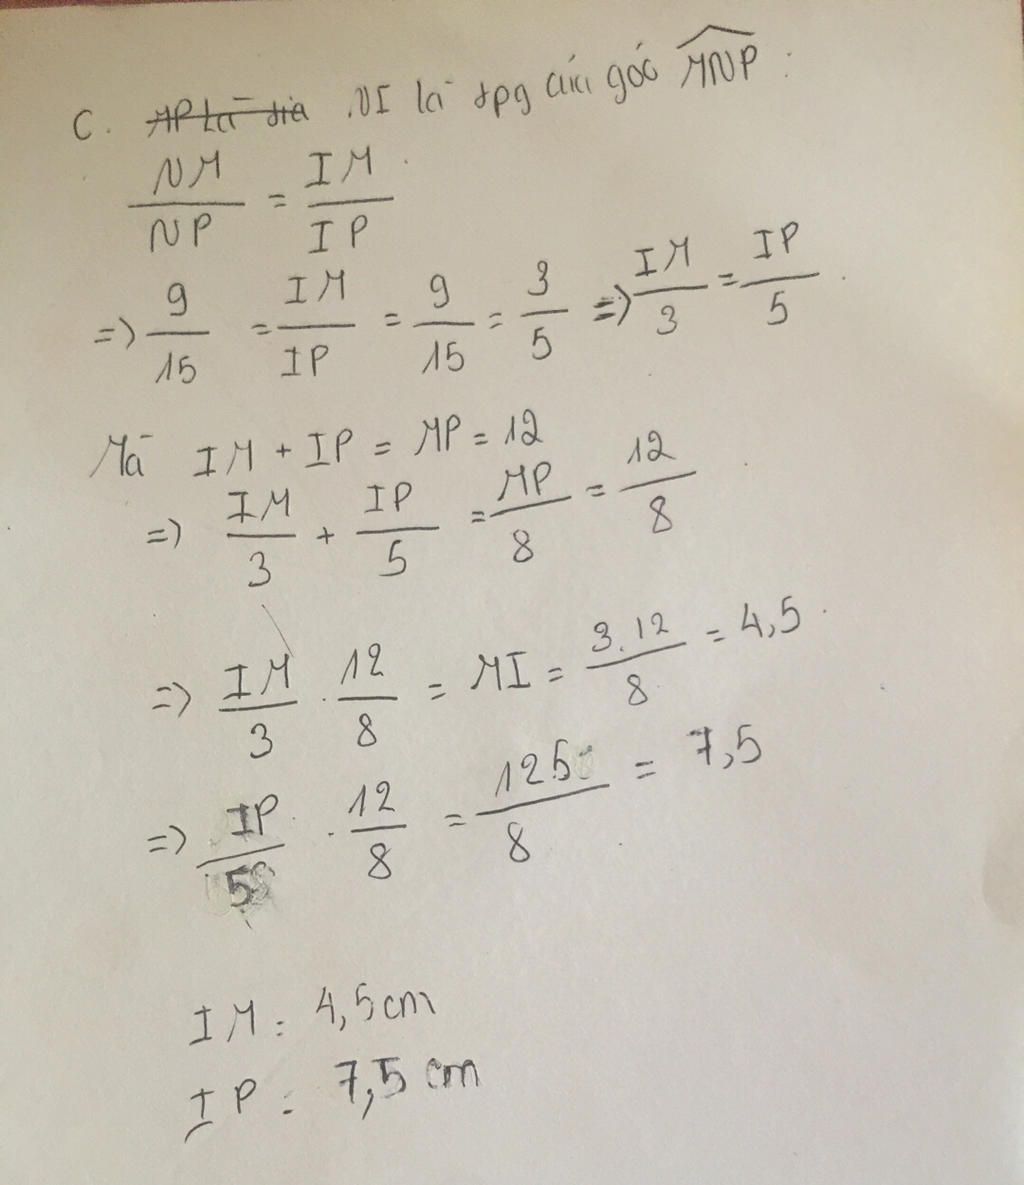 C. MP là tia NI là tpg của góc MNP :
NM/NP = IM/IP
=> 9/15 = IM/IP = 9/15 = 3/5 => IM/3 = IP/5
Mà IM + IP = MP = 12
=> IM/3 + IP/5 = MP/8 = 12/8
=> IM/3 . 12/8 = MI = 3.12/8 = 4,5
=> IP/5 . 12/8 = 125/8 = 7,5
IM = 4,5cm
IP = 7,5 cm